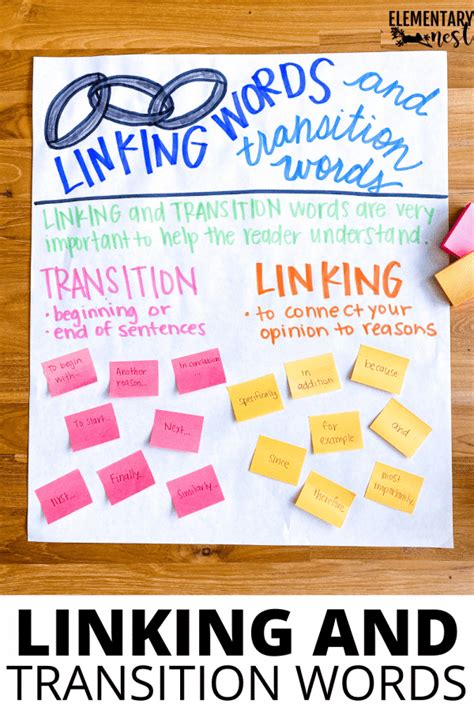 ELEMENTARY
nest
LINKING WORDS and
transition
words
LINKING and TRANSITION words are very
important to help the reader understand.
TRANSITION
• beginning or
• end of sentences
LINKING
• to connect your
opinion to reasons
To begin
with...
Another
reason...
In conclusion
To start...
Next...
Finally...
Similarly...
specifically
in
addition
because
for
example
and
since
therefore
most
importantly
LINKING AND
TRANSITION WORDS